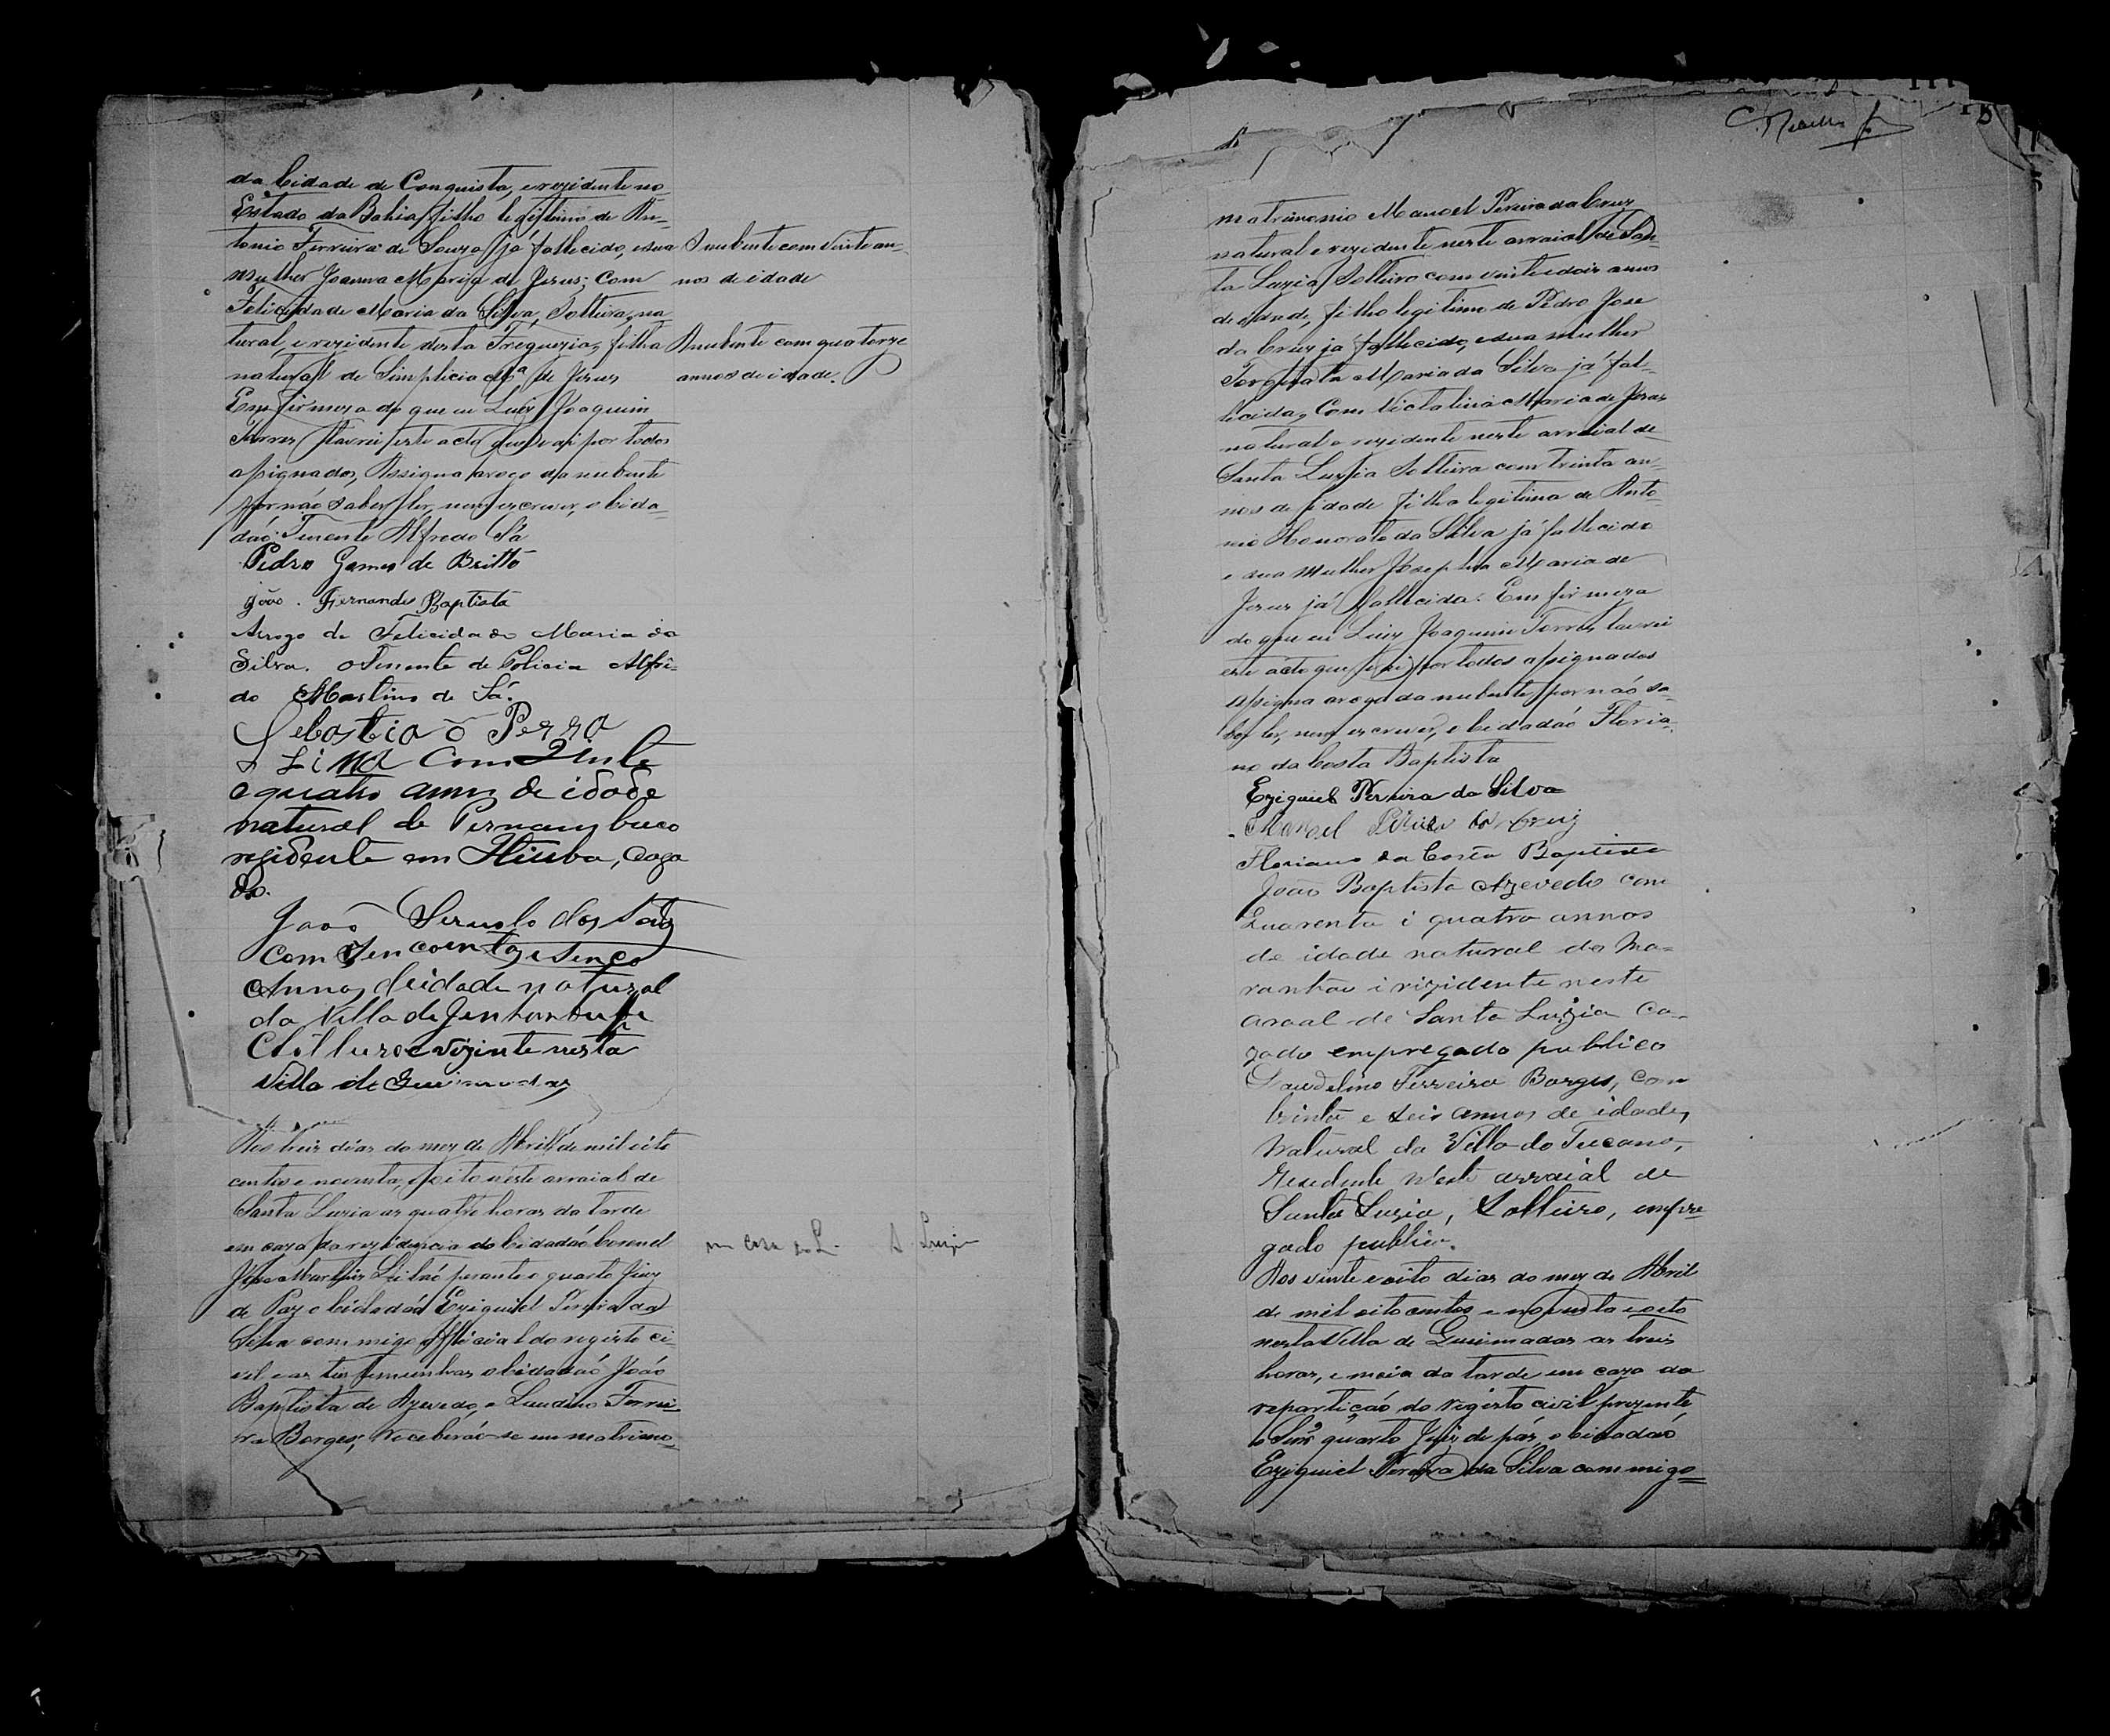 da Cidade de Conquista, e rezidente no
Estado da Bahia, filho legitimo de An-
tonio Ferreira de Souza já fallecido, e sua
mulher Joanna Maria de Jesus; Com
Felicidade Maria da Silva, Solteira, na
tural, e rezidente desta Freguezia, filha
natural de Simplicia Mª de Jesus
Em firmeza do que eu Luiz Joaquim
Torres lavrei este acto que vai por todos
assignados, Assigna arogo da nubente
por não saber ler, nem escrever, o Cida-
dão Tenente Alfredo Sá
Pedro Gomes de Britto
João Fernandes Baptista
Arogo de Felicidade Maria da
Silva. O Tenente de Policia Alfre-
do Martins de Sá.
Sebastiaõ
Lima com Vinte
e quatro annos de idade
natural de Pernambuco
rezidente em Itiuba, caza
do.
João dos
com sencoenta e senco
Annos de idade natural
da Villa de
e rezinte nesta
Villa de
O nubente com vinte an-
nos de idade
A nubente com quatorze
annos de idade.
Aos treis dias do mez de Abril de mil oito
centos e noventa, oito neste arraial de
Santa Luzia as quatro horas da tarde
em caza da rezidencia do Cidadaõ Coronel
José Martins Leitaõ perante o quarto Juiz
de Paz o Cidadaõ Eziguiel Pereira da
Silva commigo Official do registo ci-
vil e as testemunhas o Cidadaõ João
Baptista de Azevedo, e Laudino Ferrei-
ra Borges; receberaõ-se em matrimo-
em casa do L. S. Luzia
matrimonio Manoel Pereira da Cruz
natural e rezidente neste arraial de San-
ta Luzia, Solteiro com vinte e dois annos
de idade, filho legitimo de Pedro Jose
da Cruz já fallecido, e sua mulher
Torquata Maria da Silva já fal-
lecida, Com Victalina Maria de Jesus
natural e rezidente neste arraial de
Santa Luzia Solteira com trinta an-
nos de idade filha legitima de Anto-
nio Honorato da Silva já fallecido
e sua mulher Josepha Maria de
Jesus já fallecida. Em firmeza
do que eu Luiz Joaquim Torres lavrei
este acto que vai por todos assignados
assigna arogo da nubente por não sa-
ber ler, nem escrever, o Cidadaõ Floria-
no da Costa Baptista
Eziguiel Pereira da Silva
Manoel Pereira da Cruz
Floriano da Costa Baptista
João Baptista Azevedo com
Quarenta i quatro annos
de idade natural do Ma-
ranhão i rizidente neste
araal de Santa Luzia Ca-
zado empregado publico
Laudelino Ferreira Borges, com
trinta e seis annos de idade,
natural da Villa do Tucano,
residente n'este arraial de
Santa Luzia, Solteiro, empre-
gado publico.
Aos vinte e oito dias do mez de Abril
de mil oito centos e noventa e oito
nesta Villa de Queimadas as treis
horas, e meia da tarde em caza da
repartiçaõ do registo civil prezente
o Snr quarto Juiz de paz o Cidadaõ
Eziguiel Pereira da Silva commigo